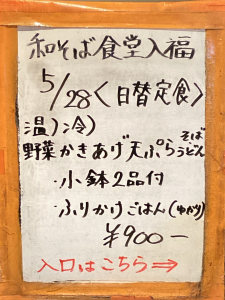 和そば食堂入福
5/28〈日替定食〉
温)冷)
野菜かきあげ天ぷらそばうどん
・小鉢2品付
・ふりかけごはん(ゆかり)
¥900-
入口はこちら⇒